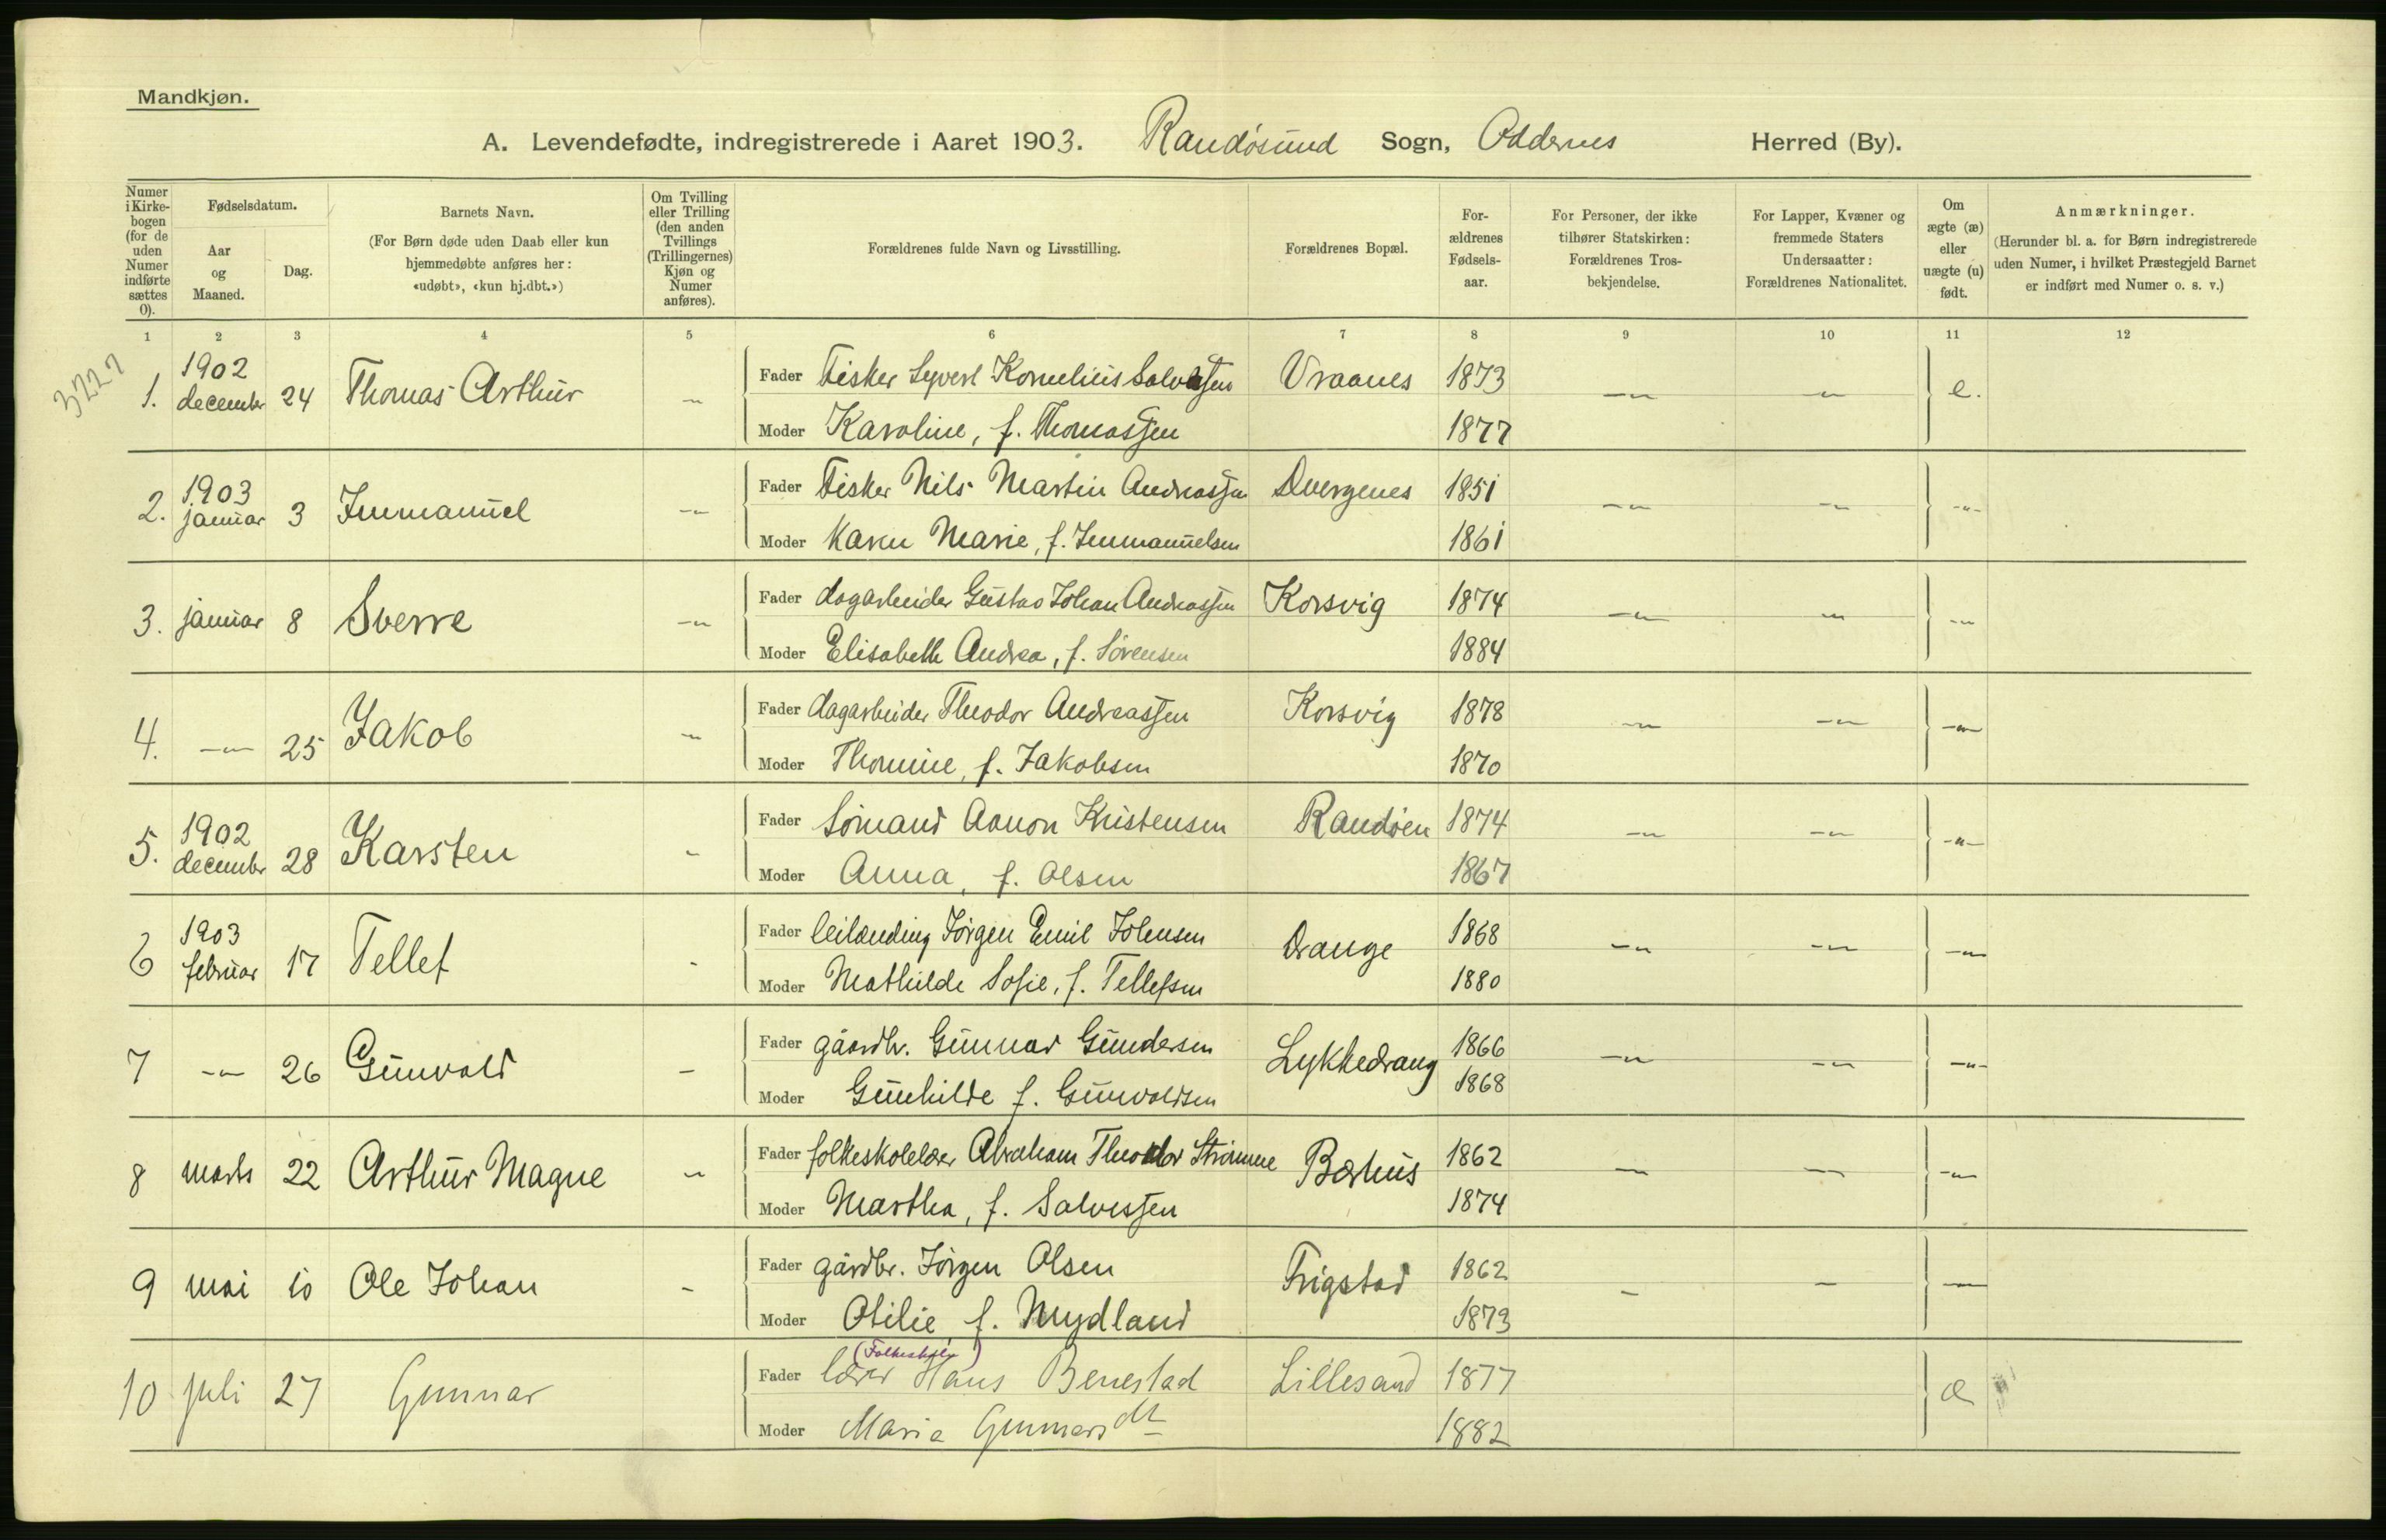 Mandkjøn.
A. Levendefødte, indregistrerede i Aaret 1903. Randøsund Sogn, Oddernes Herred (By).
Numer i Kirkebogen (for de uden Numer indførte sættes 0).
Fødselsdatum.
Aar og Maaned.
Dag.
Barnets Navn.
(For Børn døde uden Daab eller kun hjemmedøbte anføres her: «udøbt», «kun hj.dbt.»)
Om Tvilling eller Trilling (den anden Tvillings (Trillingernes) Kjøn og Numer anføres).
Forældrenes fulde Navn og Livsstilling.
Forældrenes Bopæl.
Forældrenes Fødselsaar.
For Personer, der ikke tilhører Statskirken: Forældrenes Trosbekjendelse.
For Lapper, Kvæner og fremmede Staters Undersaatter: Forældrenes Nationalitet.
Om ægte (æ) eller uægte (u) født.
Anmærkninger.
(Herunder bl. a. for Børn indregistrerede uden Numer, i hvilket Præstegjeld Barnet er indført med Numer o. s. v.)
1 2 3 4 5 6 7 8 9 10 11 12
3727
1. 1902 decembr 24 Thomas Arthur -"- Fader Fisker Syvert Kornelius Salvesen Vraanes 1873 -"- -"- e.
Moder Karoline, f. Thomassen 1877
2. 1903 januar 3 Immanuel -"- Fader Fisker Nils Martin Andreassen Dvergenes 1851 -"- -"- -"-
Moder Karen Marie, f. Immanuelsen 1861
3. januar 8 Sverre -"- Fader dagarbeider Gustav Johan Andreassen Korsvig 1874 -"- -"- -"-
Moder Elisabeth Andrea, f. Sørensen 1884
4. -"- 25 Jakob -"- Fader dagarbeider Theodor Andreassen Korsvig 1878 -"- -"- -"-
Moder Thomine, f. Jakobsen 1870
5. 1902 decembr 28 Karsten - Fader Sømand Aanon Kristensen Randøen 1874 -"- -"- -"-
Moder Anna, f. Olsen 1867
6 1903 februar 17 Tellef - Fader leilænding Jørgen Emil Johnsen Drange 1868 -"- -"- -"-
Moder Mathilde Sofie, f. Tellefsen 1880
7 -"- 26 Gunvald - Fader gaardbr. Gunnar Gundersen Lykkedrang 1866 -"- -"- -"-
Moder Gunhilde f. Gunvaldsen 1868
8 marts 22 Arthur Magne -"- Fader folkeskolelærer Abraham Theodor Strømme Bærhus 1862 -"- -"- -"-
Moder Martha, f. Salvessen 1874
9 mai 10 Ole Johan - Fader gårdbr. Jørgen Olsen Frigstad 1862 - - -"-
Moder Otilie, f. Mydland 1873
(Folkeskole)
10 juli 27 Gunnar Fader lærer Hans Benestad Lillesand 1877 æ
Moder Maria Gunnarsdt 1882